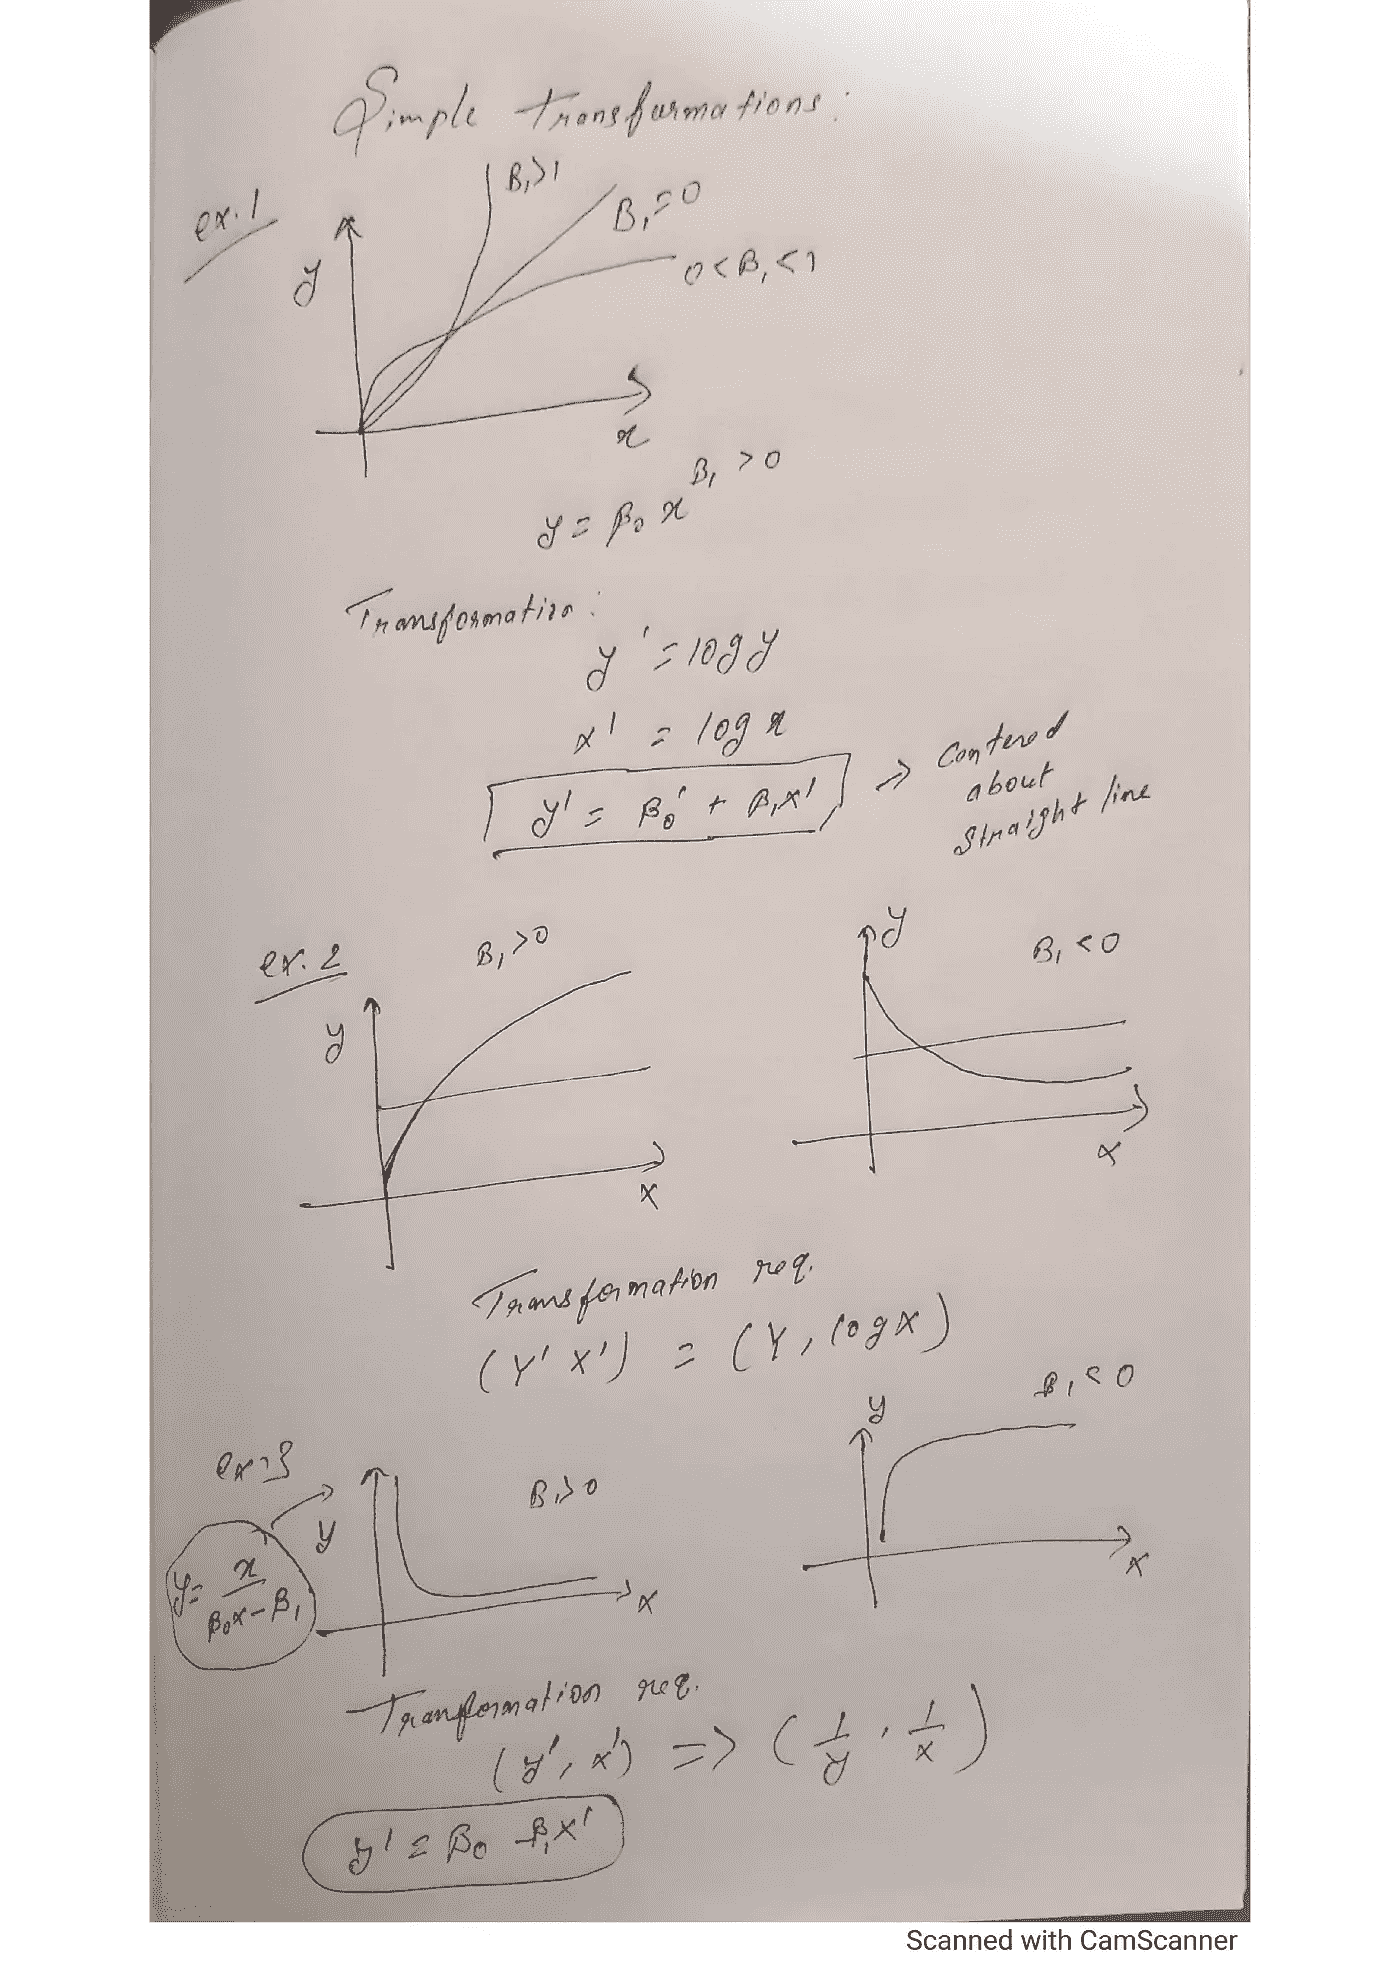 Simple Transformations:
ex.1
B₁>1
B₁=0
0<B₁<1
y
x
y = β₀ x^B₁ >0
Transformation:
y' = log y
x' = log x
y' = β₀' + β₁x' ⇒ Centered
about
straight line
ex. 2
B₁>0
y
x
y
B₁<0
x
Transformation req.
(Y' X') = (Y, log X)
ex-3
y
B₁>0
x
y
β₁<0
x
y = x / β₀x-β₁
Tranformation req.
(y', x') => (1/y, 1/x)
y' = β₀ - β₁x'
Scanned with CamScanner